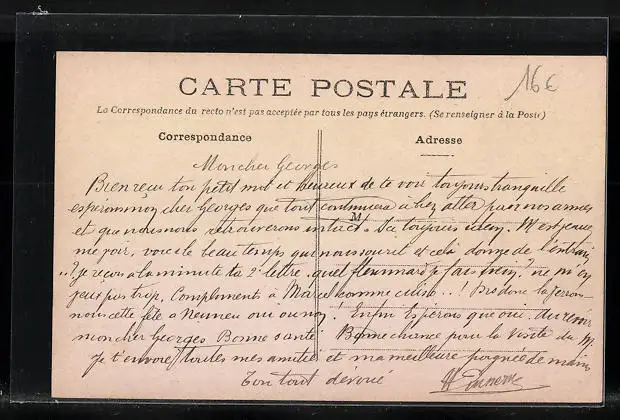 16€
CARTE POSTALE
La Correspondance du recto n'est pas acceptée par tous les pays étrangers. (Se renseigner à la Poste)
Correspondance
Adresse
Mon cher Georges
Bien reçu ton petit mot et heureux de te voir toujours tranquille
espérons mon cher Georges que tout continuera à bien aller pour nos armes
et que nous nous retrouverons intacts. Ici toujours idem.
M
voici le beau temps qui nous sourit et cela donne de l'entrain
je reçois à la minute ta 2e lettre. quel flemmard je fais hein? ne m'en
veux pas trop. Compliments à Marcel comme cuisto..! Dis donc la ferons
nous cette fête à oui ou non! Enfin Espérons que oui. Au revoir
mon cher Georges Bonne santé. Bonne chance pour la visite du M.
Je t'envoie toutes mes amitiés et ma meilleure poignée de mains
Ton tout dévoué